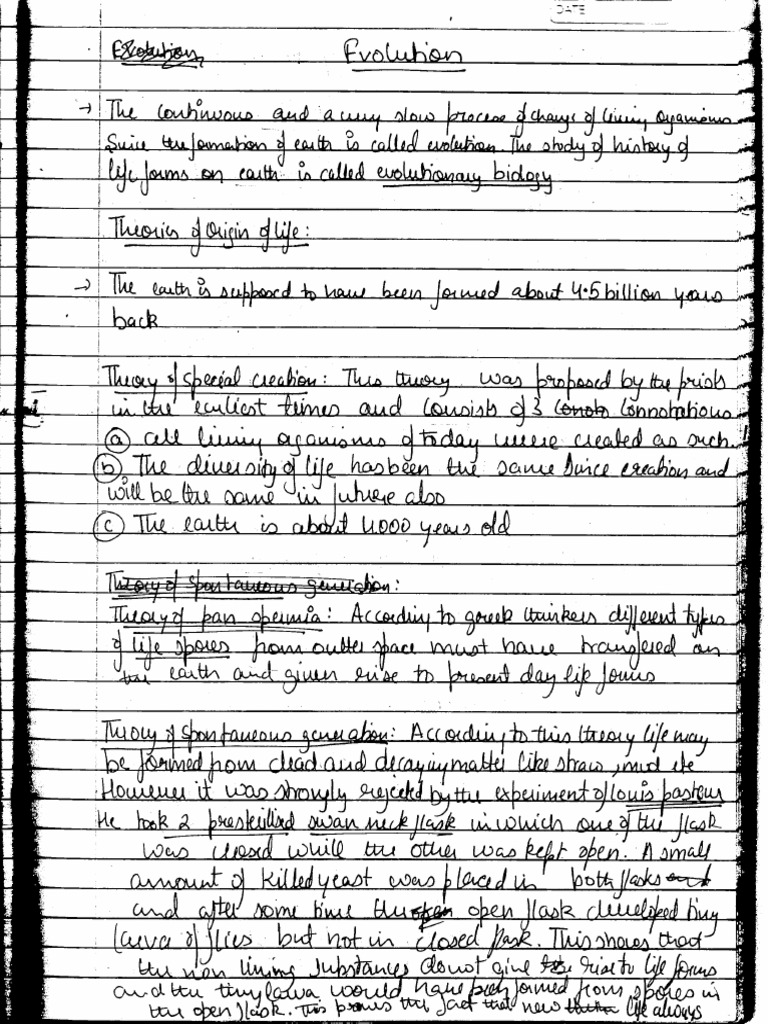 DATE
Evolution Evolution
→ The continuous and a very slow process of change of living organisms
Since the formation of earth is called evolution. The study of history of
life forms on earth is called evolutionary biology
Theories of Origin of life:
→ The earth is supposed to have been formed about 4.5 billion years
back
Theory of special creation: This theory was proposed by the prists
in the earliest times and consists of 3 connotations
(a) all living organisms of today were created as such.
(b) The diversity of life has been the same since creation and
will be the same in future also
(c) The earth is about 4000 years old
Theory of spontaneous generation:
Theory of pan spermia: According to greek thinkers different types
of life spores from outter space must have transfered on
the earth and given rise to present day life forms
Theory of spontaneous generation: According to this theory life may
be formed from dead and decaying matter like straw, mud etc
However it was strongly rejected by the experiment of louis pasteur
He took 2 presterilised swan neck flask in which one of the flask
was closed while the other was kept open. A small
amount of killed yeast was placed in both flasks and
and after some time the open open flask developed tiny
larva of flies but not in closed flask. This shows that
the non living substances do not give rise to life forms
and the tiny larva would have been formed from spores in
the open flask. This proves the fact that new life always